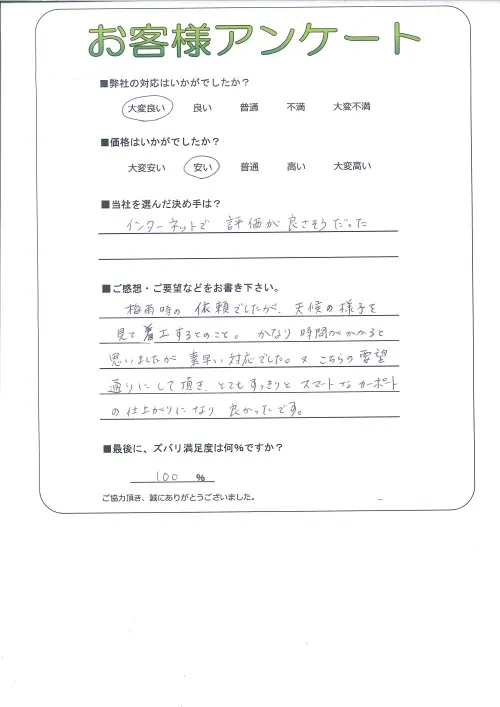 お客様アンケート
■弊社の対応はいかがでしたか？
大変良い 良い 普通 不満 大変不満
■価格はいかがでしたか？
大変安い 安い 普通 高い 大変高い
■当社を選んだ決め手は？
インターネットで 評価が良さそうだった
■ご感想・ご要望などをお書き下さい。
梅雨時の 依頼でしたが、天候の様子を
見て着工するとのこと。かなり時間がかかると
思いましたが 素早い対応でした。又 こちらの要望
通りにして頂き、とてもすっきりと スマートなカーポート
の仕上がりになり 良かったです。
■最後に、ズバリ満足度は何％ですか？
100 ％
ご協力頂き、誠にありがとうございました。